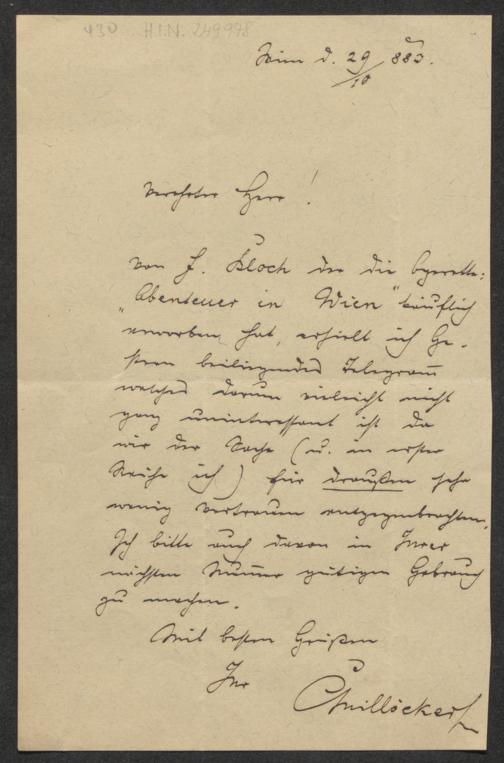 430 H.I.N. 249978
Wien d. 29/10 883.
Verehrter Herr!
Von H. Bloch der die Operette:
„Abenteuer in Wien“ käuflich
erworben hat, erhielt ich Ge-
stern beiliegendes Telegram̅
welches darum vielleicht nicht
ganz uninteressant ist da
wir der Sache (u. in erster
Reihe ich) für draußen sehr
wenig Vertrauen entgegenbrachten.
Ich bitte auch davon in Ihrer
nächsten Num̅er gütigen Gebrauch
zu machen.
Mit besten Grüßen
Ihr
CMillöcker